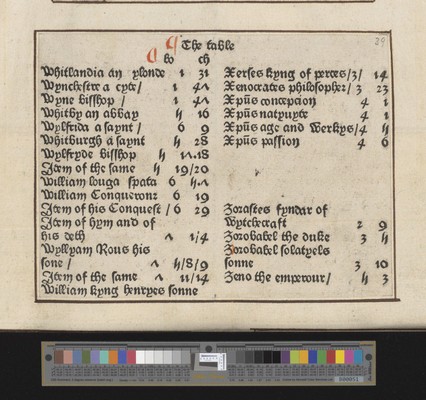 ¶ The table
39
¶ bo ch
Whitlandia an ylonde 1 31
Wynchestre a cyte/ 1 4ʌ
Wyne bisshop / 1 4ʌ
Whitby an abbay ıı 16
Wylfrida a saynt / 6 9
Whitburgh a saynt ıı 28
Wylfryde bisshop ıı
Item of the same ıı 19/20
William longa spata 6
William Conquerour 6 19
Item of his Conquest / 6 29
Item of hym and of
his deth ʌ 1/4
Wyllyam Rous his
sone / ʌ ıı/8/9
Item of the same ʌ 11/14
William kyng henryes sonne
Xerses kyng of perces/3/ 14
Xenocrates philosopher/ 3 23
Xpūs concepcion 4 1
Xpūs natyuyte 4 1
Xpūs age and Werkys/4 ıı
Xpūs passion 4 6
Zorastes fyndar of
Wytchecraft 2 9
Zorobabel the duke 3 ıı
Zorobabel solatyels
sonne 3 10
Zeno the emperour/ ıı 3